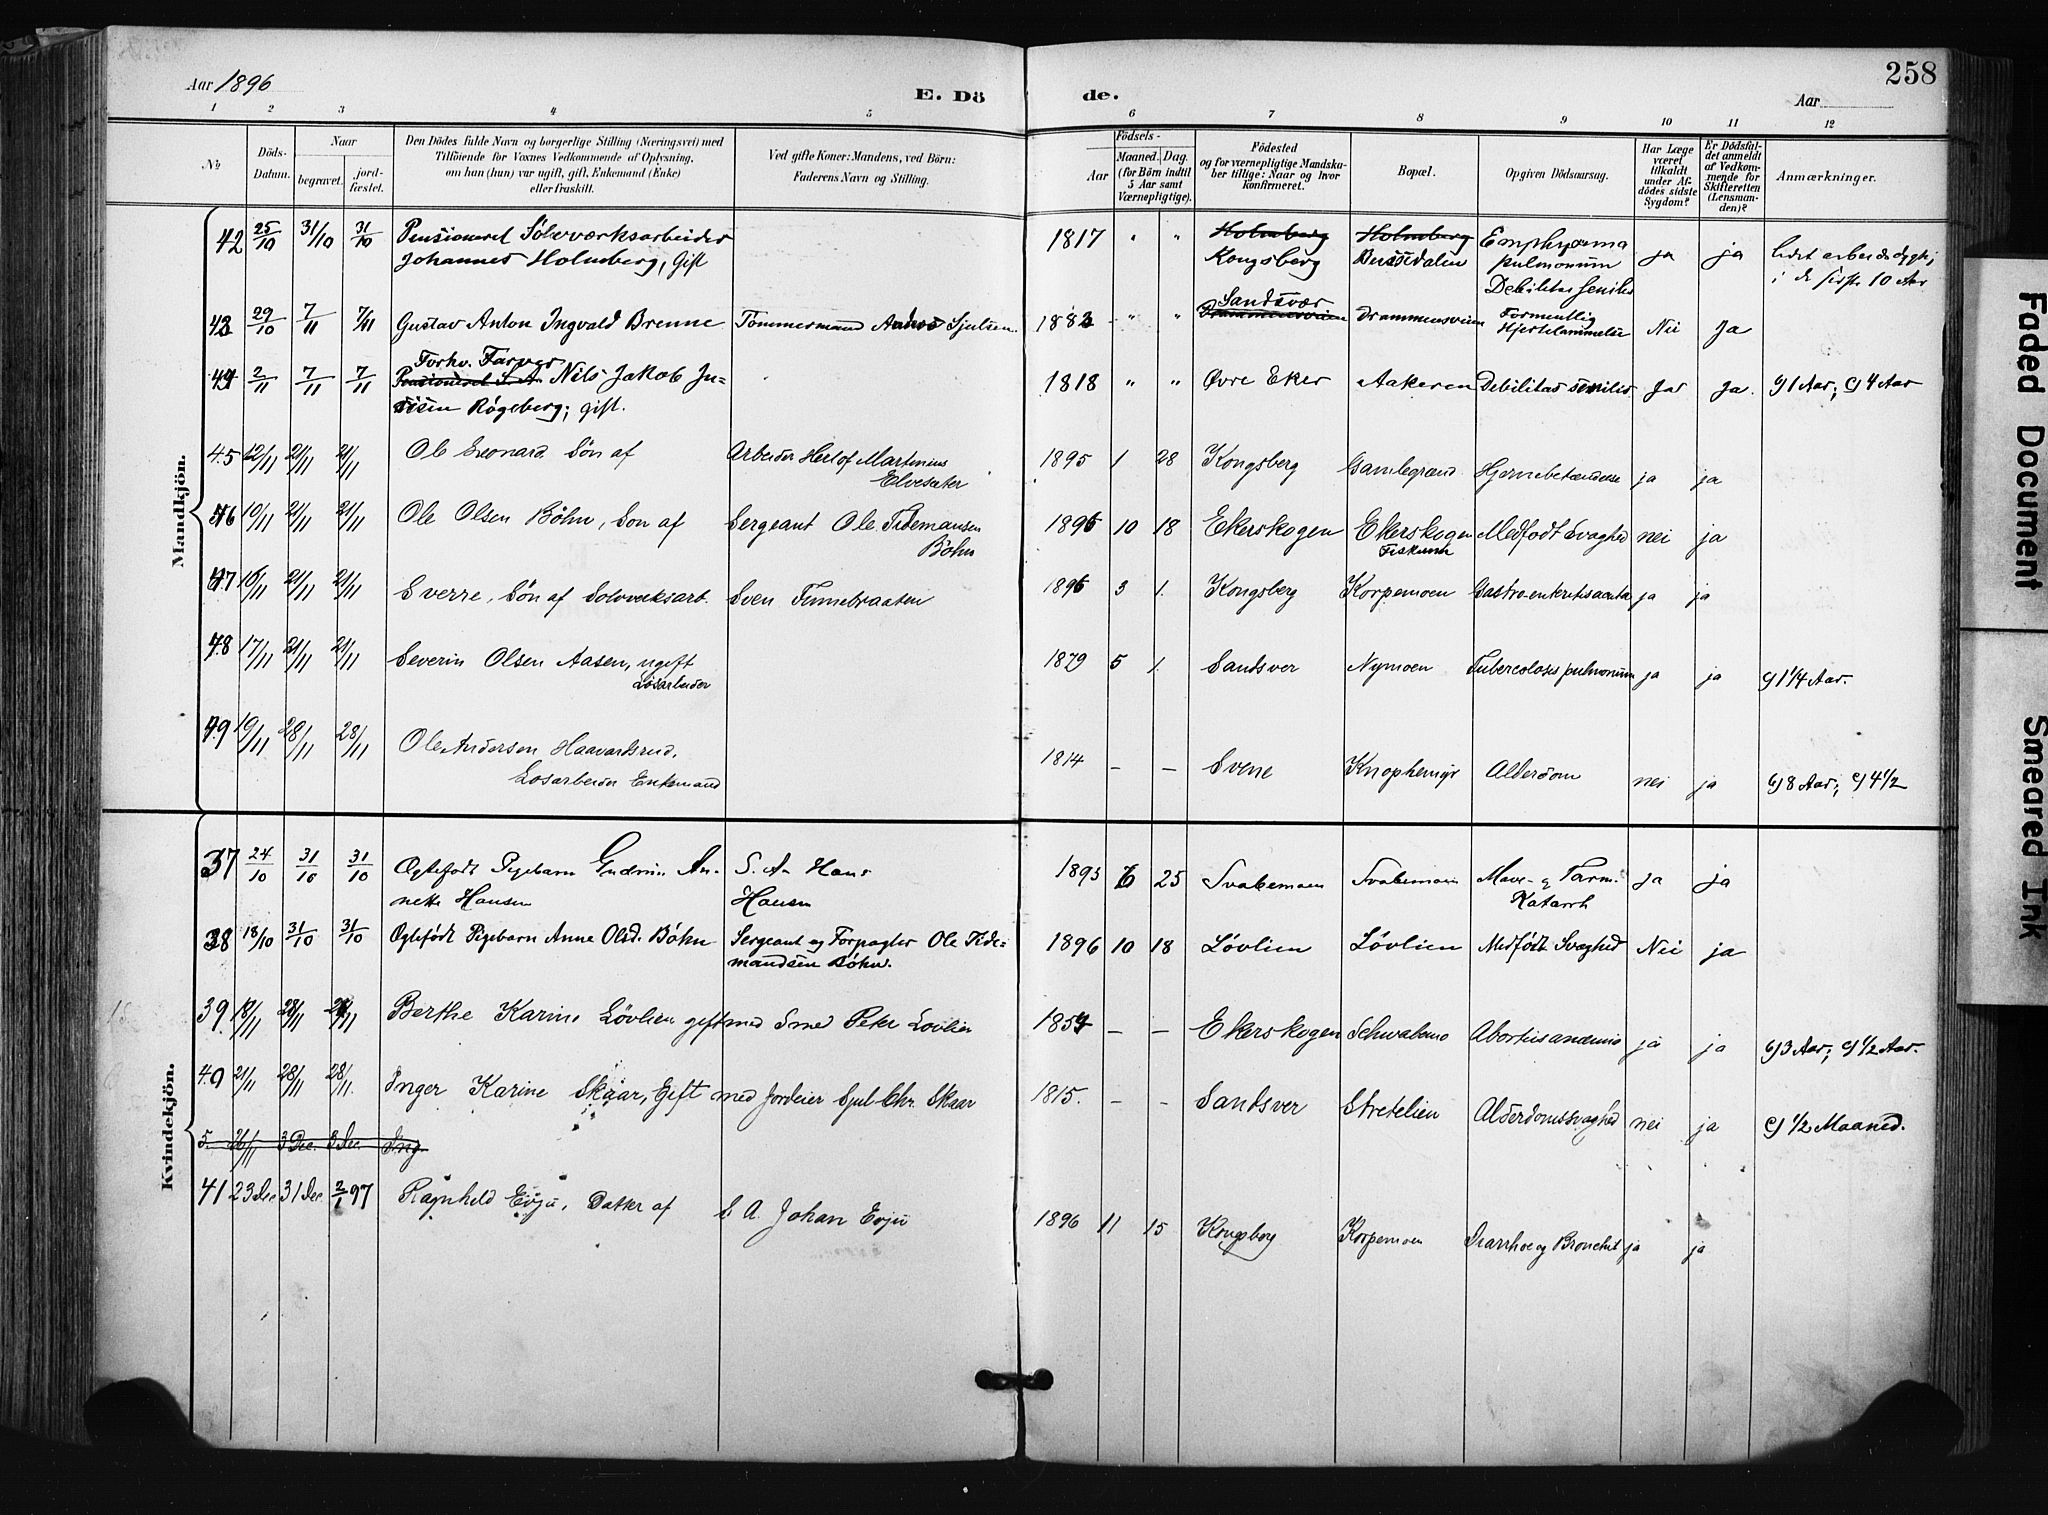 258
Aar 1896
E. Dö de.
Aar
1 2 3 4 5 6 7 8 9 10 11 12
No. Döds-Datum. Naar begravet. jord-fæstet. Den Dödes fulde Navn og borgerlige Stilling (Næringsvei) med Tilföiende for Voxnes Vedkommende af Oplysning, om han (hun) var ugift, gift, Enkemand (Enke) eller fraskilt. Ved gifte Koner: Mandens, ved Börn: Faderens Navn og Stilling. Födsels- Aar Maaned. Dag. (for Börn indtil 5 Aar samt Værnepligtige). Födested og for værnepligtige Mandskaber tillige: Naar og hvor konfirmeret. Bopæl. Opgiven Dödsaarsag. Har Læge været tilkaldt under Afdödes sidste Sygdom? Er Dödsfaldet anmeldt af Vedkommende for Skifteretten (Lensmanden)? Anmærkninger.
Mandkjön.
42 25/10 31/10 31/10 Pensioneret Sölvværksarbeider 1817 " " Holmberg Holmberg Emphysema
Johannes Holmberg, Gift Kongsberg pulmonum ja ja
Debilitas senilis i de sidste 10 Aar
43 29/10 7/11 7/11 Gustav Anton Ingvald Brenne Tømmermand Anders Sjulsen 1883 " " Sandsvær Drammensveien Formentlig Hjertelammelse Nei Ja
44 2/11 7/11 7/11 Forhv. Farver
Pensioneret S. A. Nils Jakob 1818 " " Øvre Eker Aakeren Debilitas senilis Ja Ja. G 1 Aar; S 4 Aar
Røgeberg; gift.
45 12/11 21/11 21/11 Ole Leonard Sön af Arbeider Herlof Martinius 1895 1 28 Kongsberg Gamlegrænd Hjernebetændelse ja ja
Elvesæter
46 10/11 21/11 21/11 Ole Olsen Böhn, Sön af Sergeant Ole Tidemansen 1896 10 18 Ekerskogen Ekerskogen Medfødt Svaghed nei ja
Böhn Fiskum
47 16/11 21/11 21/11 Sverre, Sön af Sølvverksarb. Sven Finnebraaten 1896 3 1. Kongsberg Korpemoen Gastro-enteritis acuta ja ja
48 17/11 21/11 21/11 Severin Olsen Aasen, ugift 1879 5 1. Sandsver Nymoen Tuberculosis pulmonum ja ja G 1 1/4 Aar.
Løsarbeider
49 19/11 28/11 28/11 Ole Andersen Haavardsrud, 1814 — — Svene Knophemyr Alderdom nei ja G 8 Aar; S 4 1/2
Løsarbeider Enkemand
Kvindekjön.
37 24/10 31/10 31/10 Ægtefødt Pigebarn Gudrun An- S. A. Hans 1895 6 25 Svabemoen Svabemoen Mave- og Tarm- ja ja
nette Hansen Hansen Katarrh
38 18/10 31/10 31/10 Ægtefödt Pigebarn Anne Olsd. Böhn Sergeant og Forpagter Ole Tide- 1896 10 18 Løvlien Løvlien Medfödt Svaghed Nei ja
mandsen Böhn.
39 18/11 28/11 Berthe Karine Lövlien gift med Smed Peter Lövlien 1854 — — Ekerskogen Schwabemo ja ja G 3 Aar; S 1/2 Aar.
40 21/11 28/11 28/11. Inger Karine Skaar, Gift med Jordeier Sjul Chr. Skaar 1815. — — Sandsver Stretelien Alderdomssvaghed nei ja S 1/2 Maaned.
5. 26/11 3 Dec. 3 Dec. Ing
41 23 Dec 31 Dec. 2/1 97 Ragnhild Evju, Datter af S. A. Johan Evju 1896 11 15 Kongsberg Korpemoen Diarrhoe og Bronchit ja ja
Faded Document
Smeared Ink